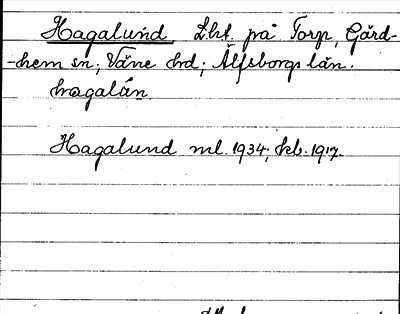 Hagalund, Lht. på Torp, Gärd-
-hem sn; Väne hd; Älfsborgs län.
hagalán
Hagalund ml. 1934; kb. 1917.